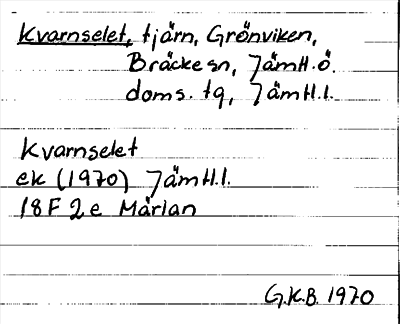 Kvarnselet, tjärn, Grönviken,
Bräcke sn, Jämtl.ö.
doms. tg, Jämtl.l.
Kvarnselet
ek (1970) Jämtl.l.
18 F 2 e Mårian
G.K.B. 1970